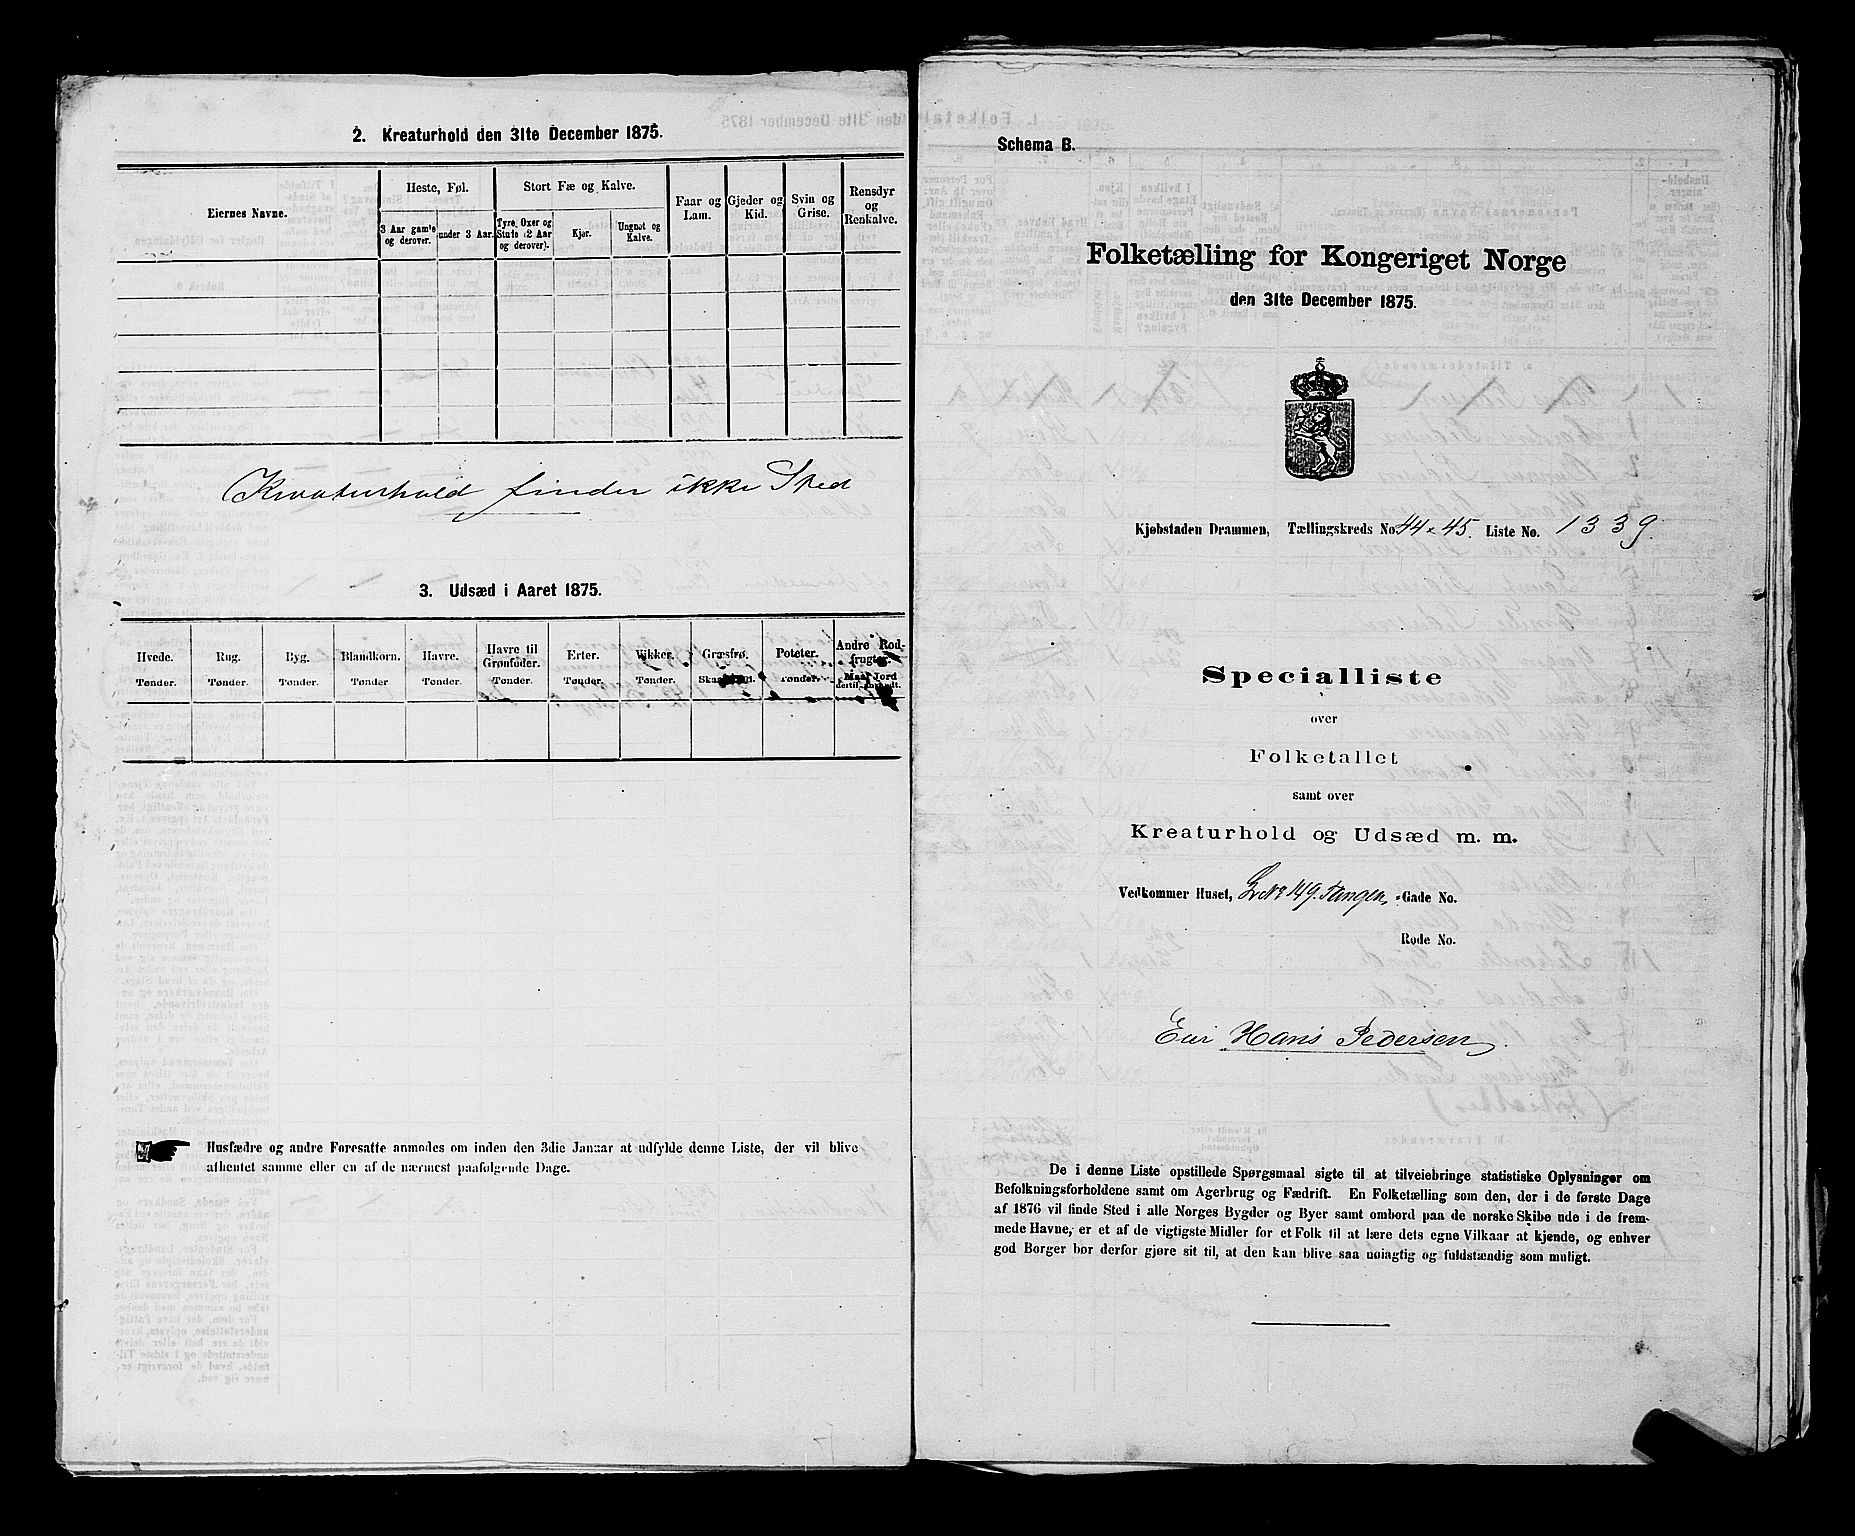 2. Kreaturhold den 31te December 1875.
Eiernes Navne.
Heste, Føl.
3 Aar gamle og derover.
under 3 Aar.
Stort Fæ og Kalve.
Tyre, Oxer og Stude (2 Aar og derover).
Kjør.
Ungnøt og Kalve.
Faar og Lam.
Gjeder og Kid.
Svin og Grise.
Rensdyr og Renkalve.
Kreaturhold finder ikke Sted
3. Udsæd i Aaret 1875.
Hvede.
Tønder.
Rug.
Tønder.
Byg.
Tønder.
Blandkorn.
Tønder
Havre.
Tønder.
Havre til Grønfoder.
Tønder.
Erter.
Tønder.
Vikker.
Tønder.
Græsfrø.
Poteter.
Tønder.
Andre Rodfrugter.
Husfædre og andre Foresatte anmodes om inden den 3die Januar at udfylde denne Liste, der vil blive
afhentet samme eller en af de nærmest paafølgende Dage.
Schema B.
Folketælling for Kongeriget Norge
den 31te December 1875.
Kjøbstaden Drammen, Tællingskreds No. 44 & 45. Liste No. 1339.
Specialliste
over
Folketallet
samt over
Kreaturhold og Udsæd m. m.
Vedkommer Huset, 149. Tangen Gade No.
Rode No.
Eier Hans Pedersen
De i denne Liste opstillede Spørgsmaal sigte til at tilveiebringe statistiske Oplysninger om
Befolkningsforholdene samt om Agerbrug og Fædrift. En Folketælling som den, der i de første Dage
af 1876 vil finde Sted i alle Norges Bygder og Byer samt ombord paa de norske Skibe ude i de frem-
mede Havne, er et af de vigtigste Midler for et Folk til at lære dets egne Vilkaar at kjende, og enhver
god Borger bør derfor gjøre sit til, at den kan blive saa nøiagtig og fuldstændig som muligt.